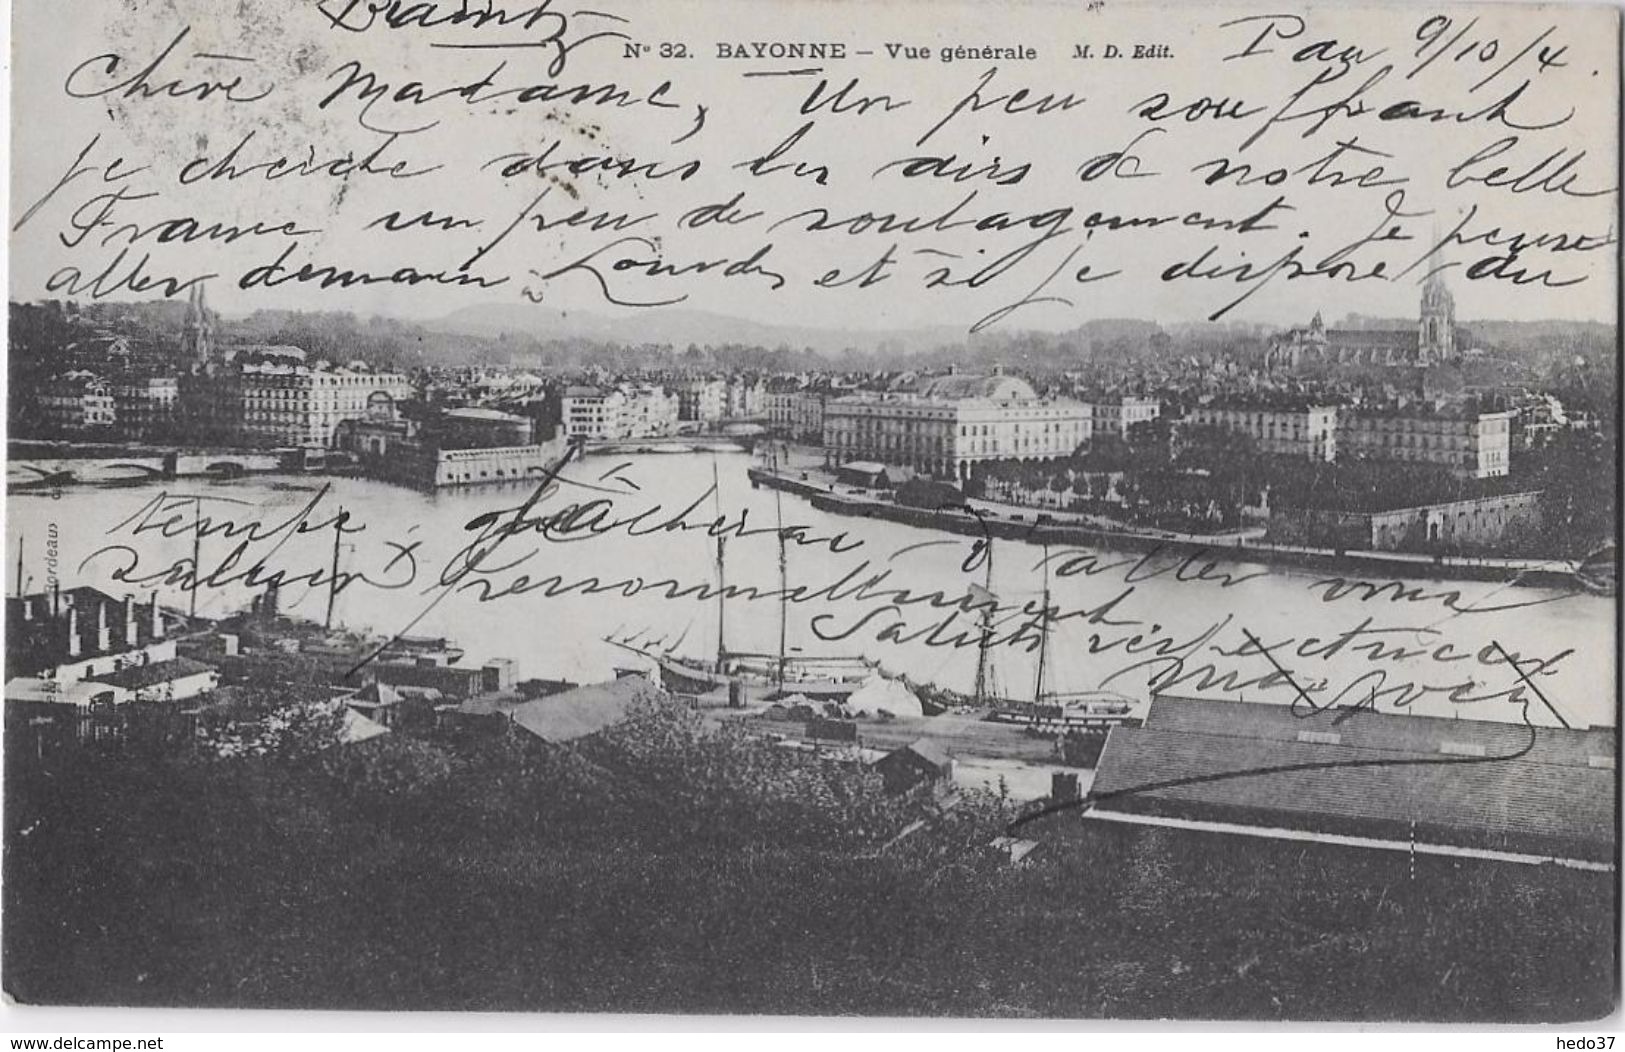 Nº 32. BAYONNE — Vue générale M. D. Edit.
Pau 9/10/4.
Chère Madame, Un peu souffrant
je cherche dans les airs de notre belle
France un peu de soulagement. Je pense
aller demain à Lourdes et si je dispose du
temps, tâcherai d'aller vous
saluer personnellement
Saluts respectueux
Bordeaux
delcampe.net
hedo37